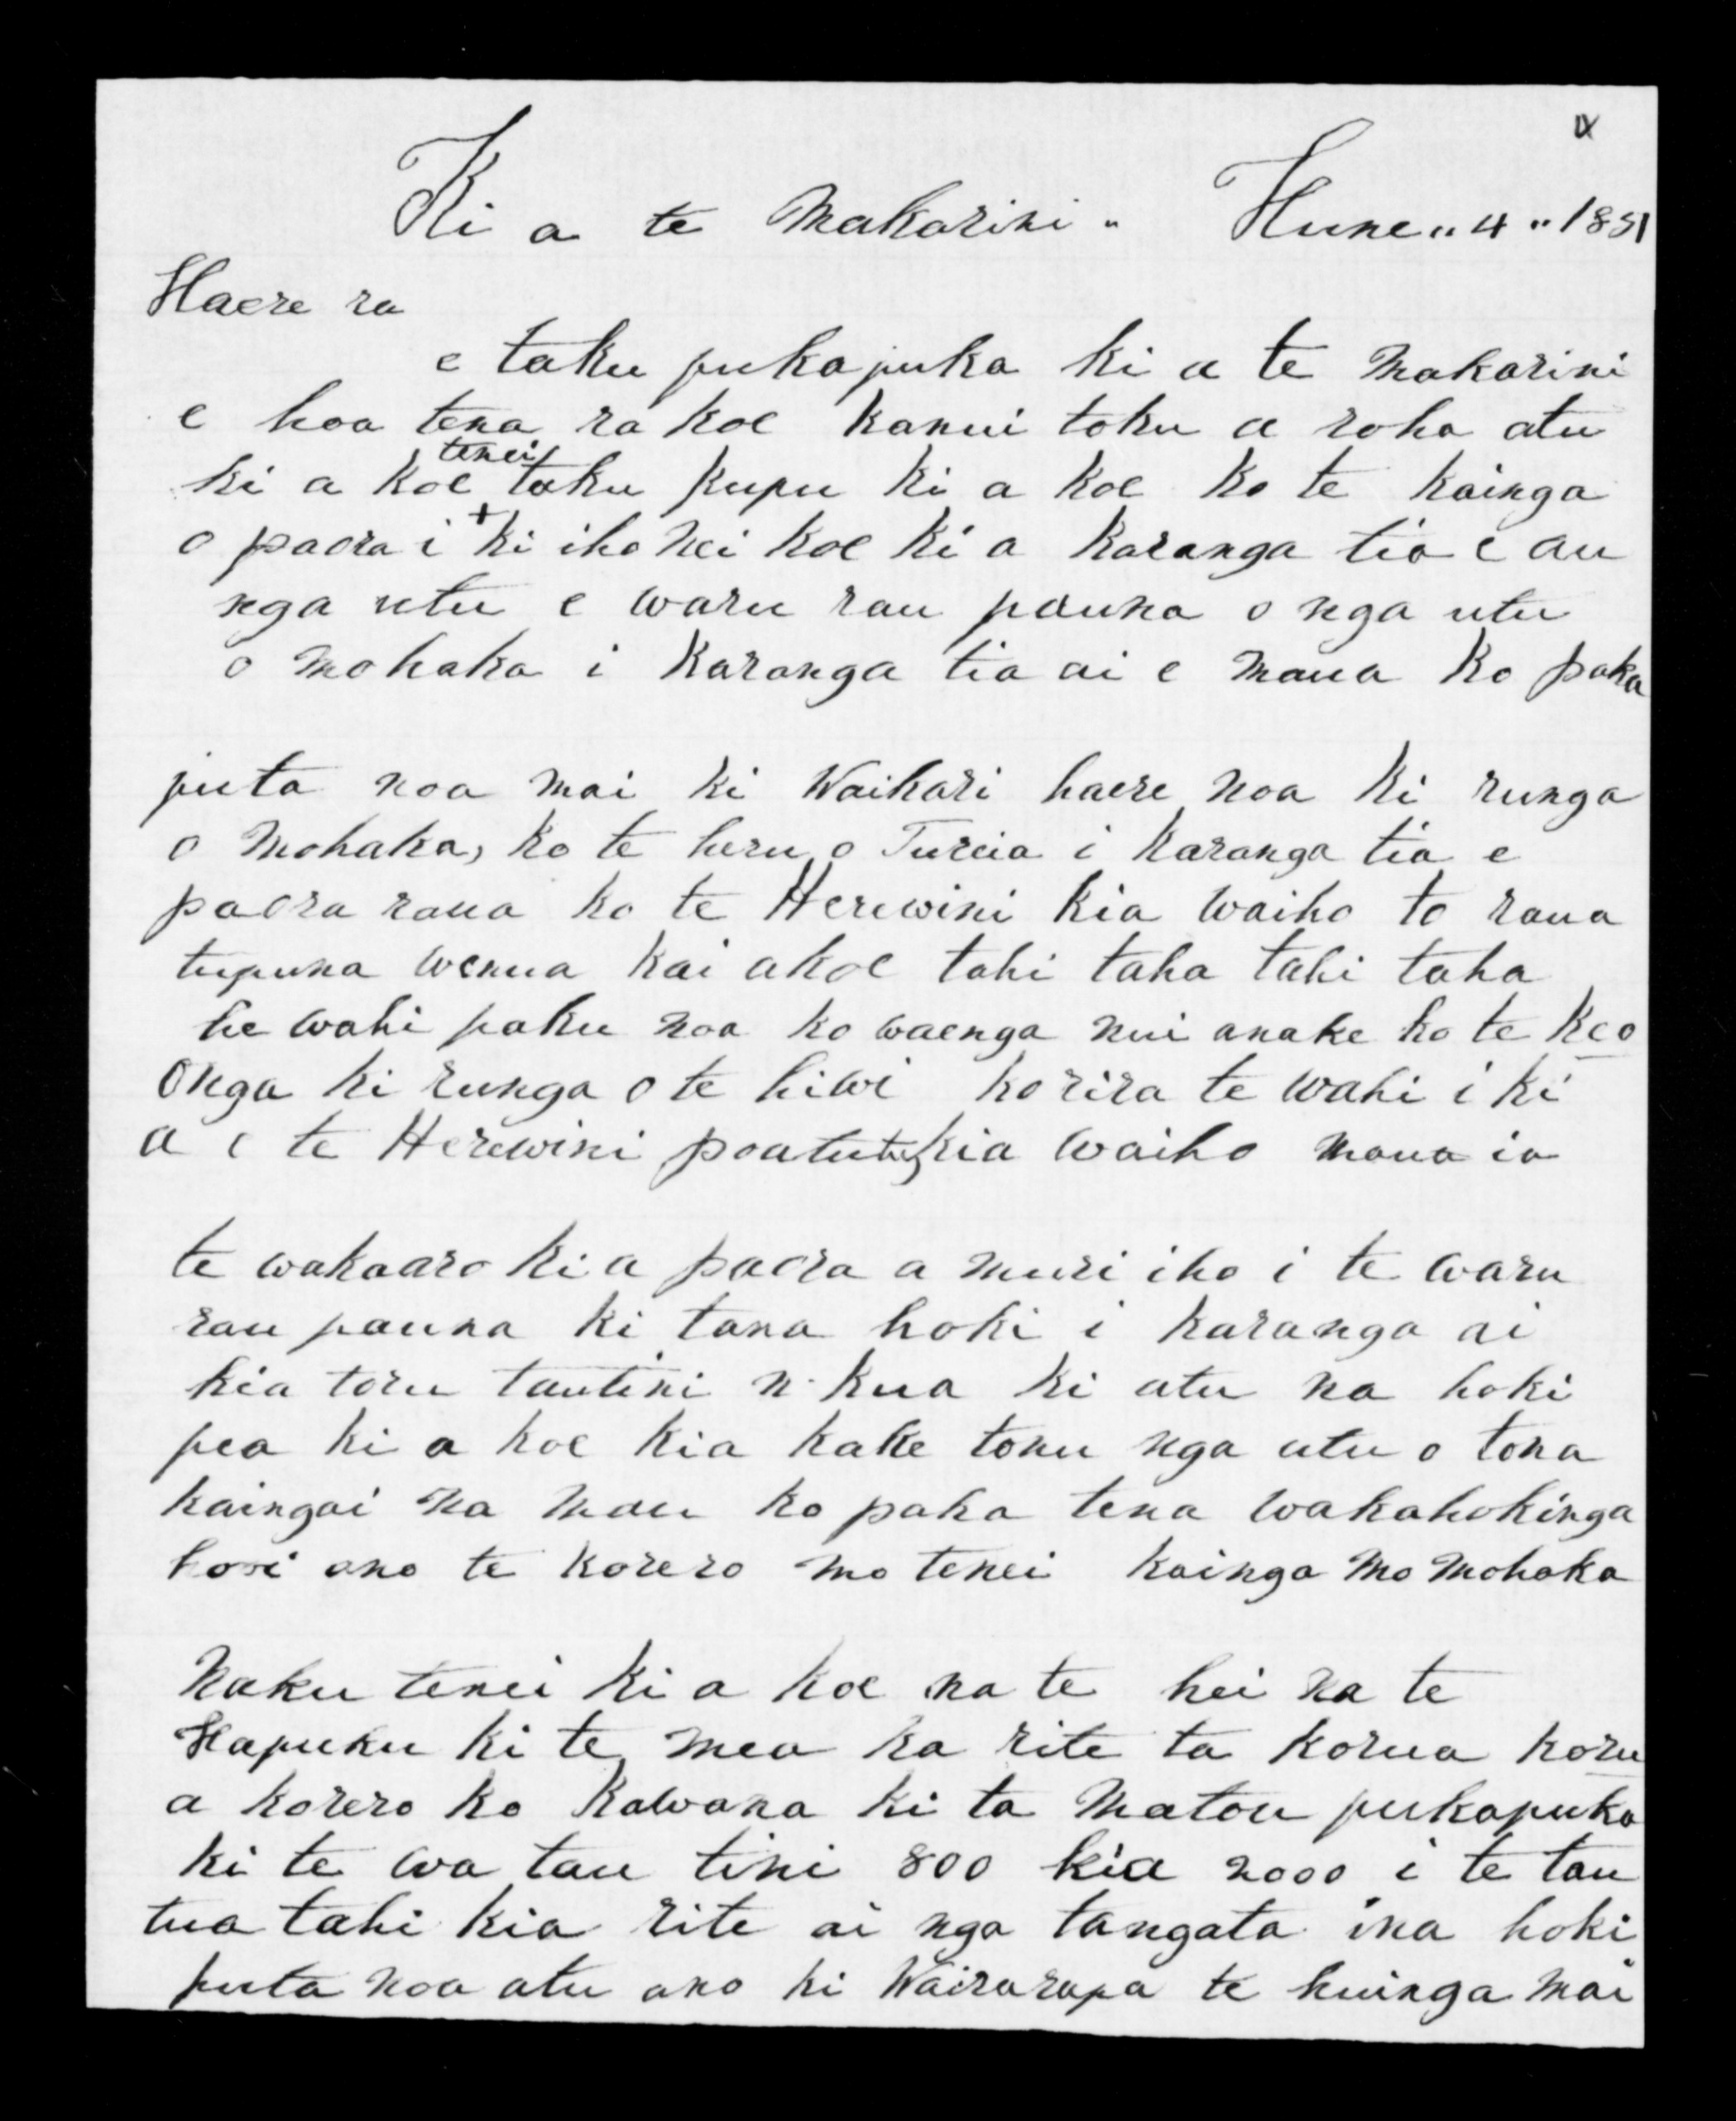 Ki a te Makarini " Hune " 4 " 1851
Haere ra
e taku pukapuka ki a te Makarini
e hoa tena ra koe kanui toku a roha atu
ki a koe tenei taku kupu ki a koe ko te kainga
o paora i + ki iho nei koe ki a karanga tia e au
nga utu e waru rau pauna o nga utu
o Mohaka i karanga tia ai e maua ko paka
puta noa mai ki Waikari haere noa ki runga
o Mohaka, ko te huru o Tureia i karanga tia e
paora raua ko te Herewini kia waiho to raua
tupuna wenua kai akoe tahi taha tahi taha
he wahi paku noa ko waenga nui anake ko te keo
onga ki runga o te hiwi ko rira te wahi i ki
a e te Herewini poatututu kia waiho maua ia
te wakaaro ki a paora a muri iho i te waru
rau pauna ki tana hoki i karanga ai
kia toru tautini n kua ki atu na hoki
pea ki a koe kia kake tonu nga utu o tona
kaingai na mau ko paka tena wakahokinga
ano te korero mo tenei kainga mo Mohaka
Naku tenei ki a koe na te hei na te
Hapuku ki te mea ka rite ta korua koru
a korero ko Kawana ki ta matou pukapuka
ki te wa tau tini 800 kia 2000 i te tau
tua tahi kia rite ai nga tangata ina hoki
puta noa atu ano ki Wairarapa te huinga mai